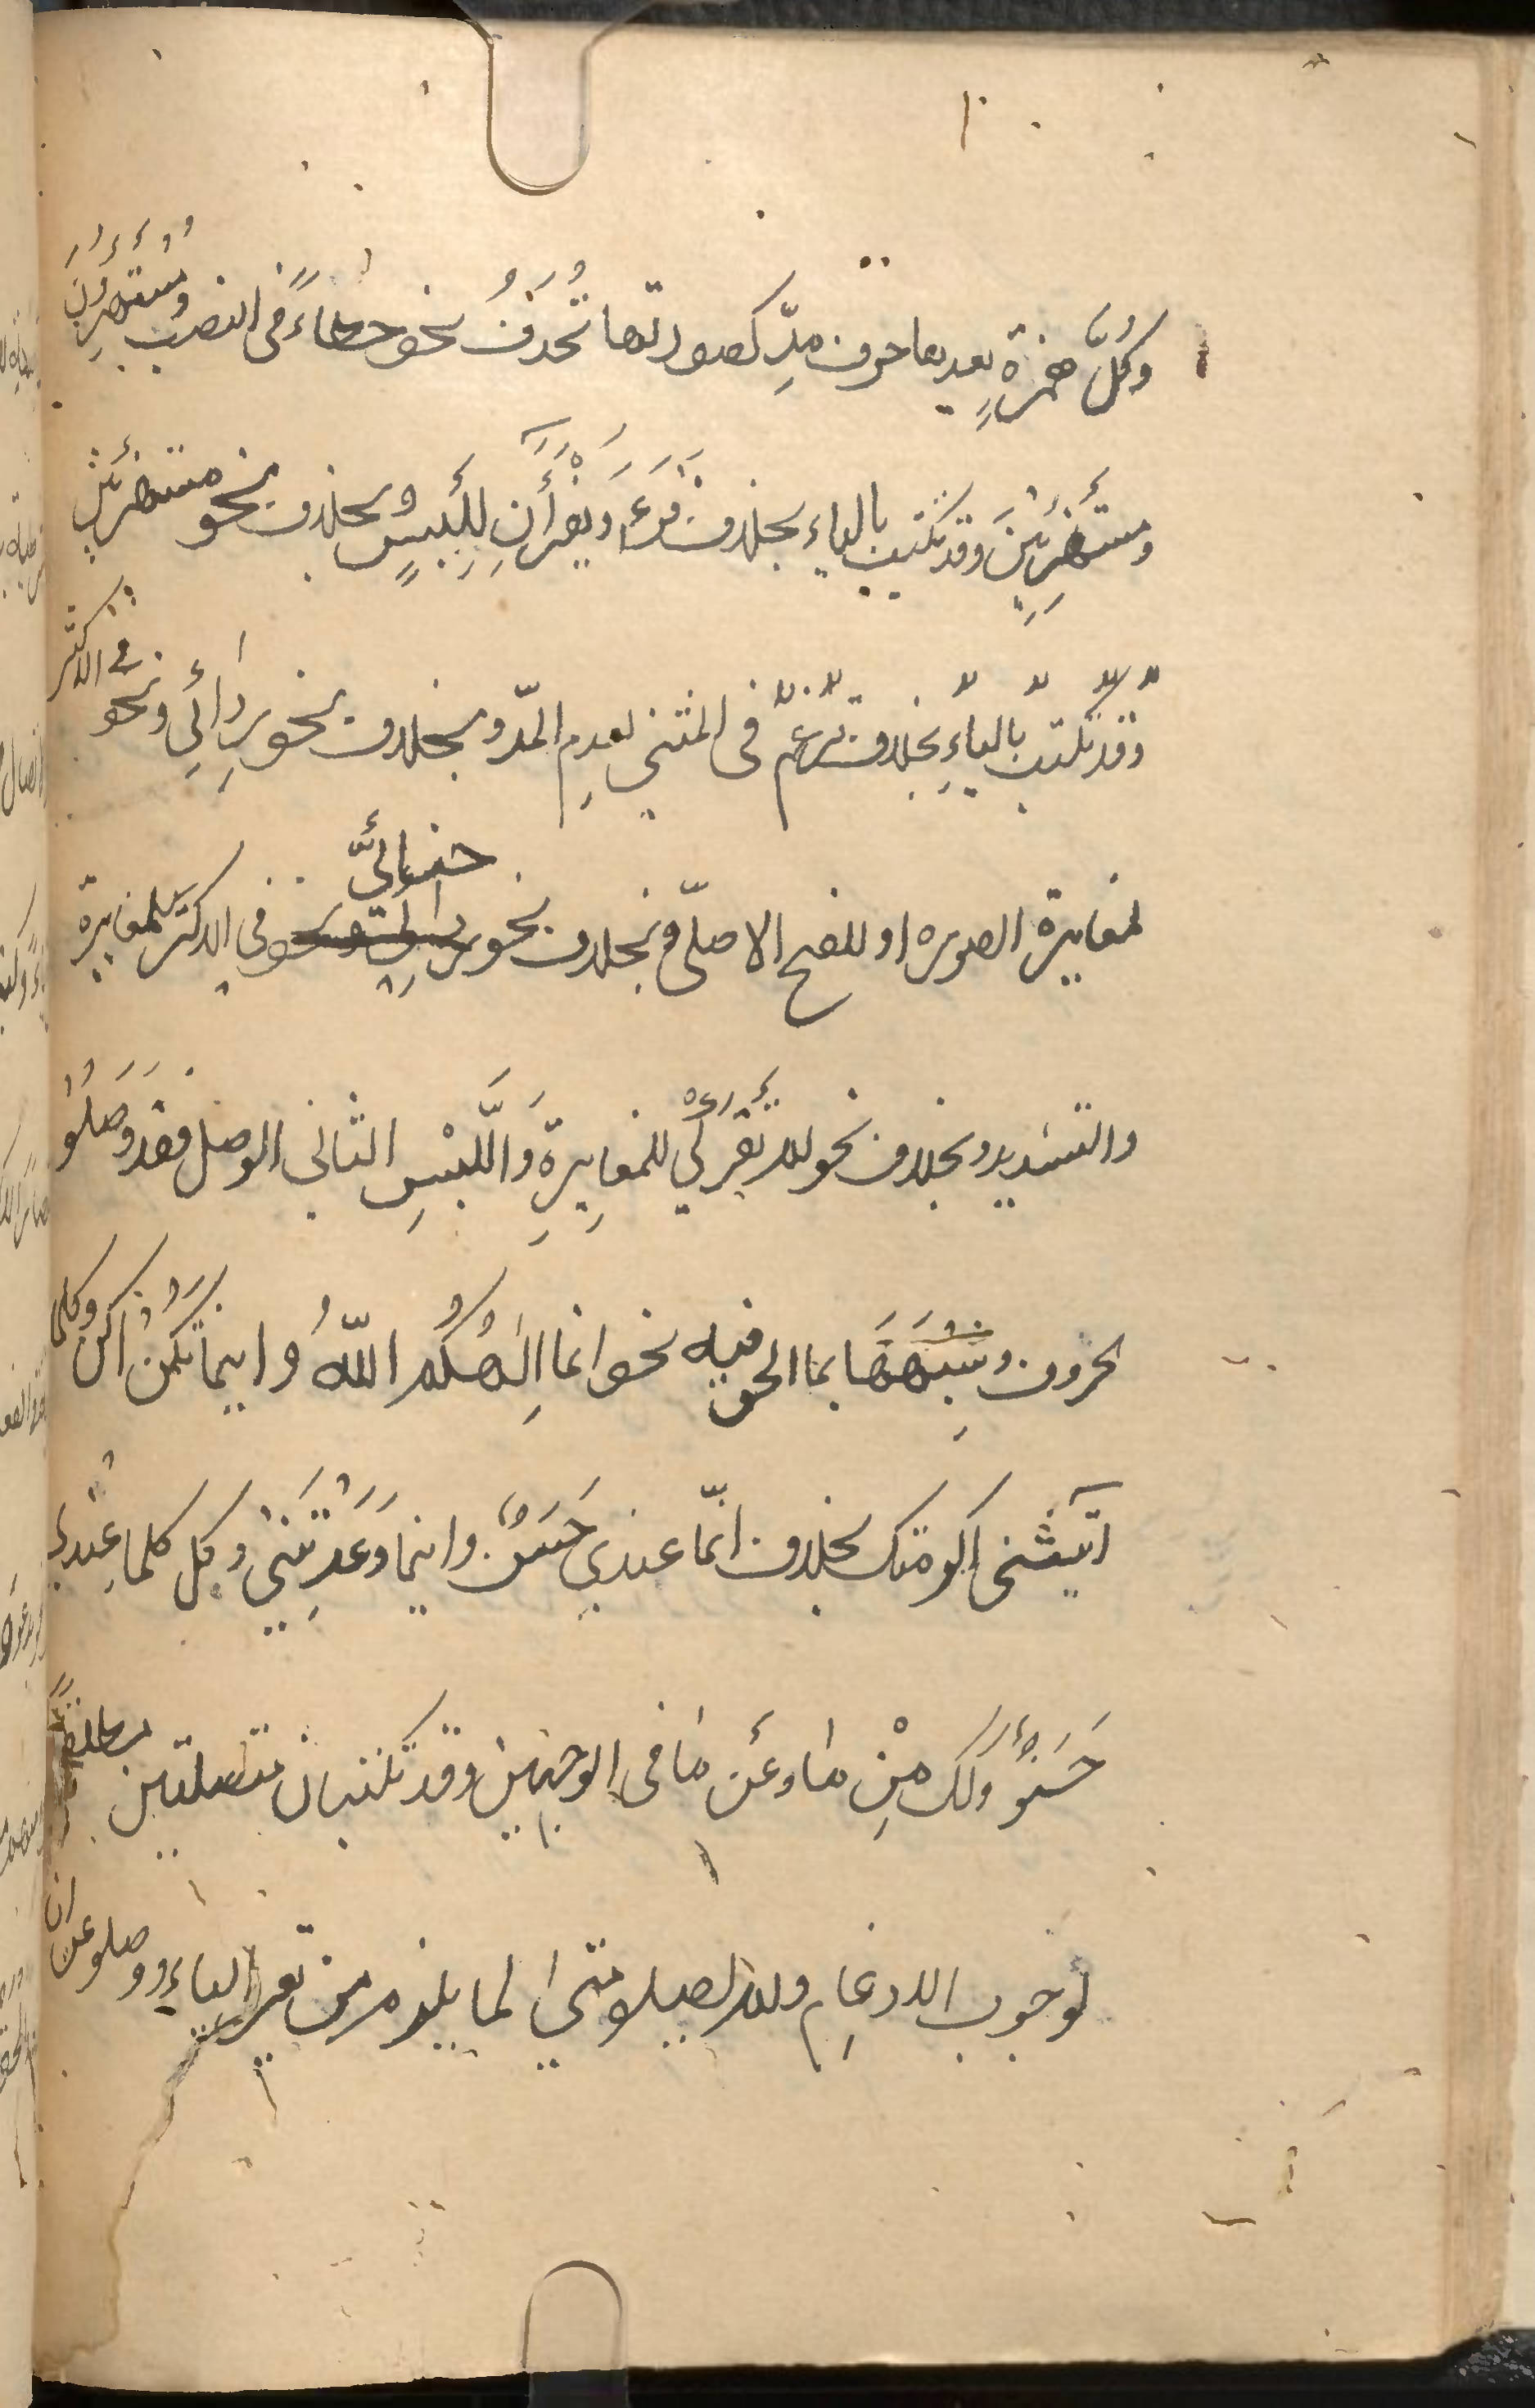 وَكُلُّ همزةٍ بعدها حرف مدِّ كصورتها تُحذفُ نحو خطاءً في النصب ومستهزِؤُنَ
ومستَهزِئِينَ وقد تكتب بالياء بخلاف قرءا ويقرأَانِ لِلَّبسِ وبخلاف نحو مستهزئين
وقد تكتب بالياءِ بخلاف في المثنى لعدمِ المدّ وبخلاف نحو رِدائِي ونحو في الاكثر
لمغايرة الصوره او للفتح الاصلّي وبخلاف نحو حنائيّ في الاكثر للمغايرة
والتشديد وبخلاف نحو لم تقرئي للمغايِرةِ وَاللَّبْسِ الثاني الوصل فقد وَصَلُوا
لحروف وشِبْهَهَا بما الحرفيه نحو انما اِلٰهُكُم اللّهُ واينما تكُنْ اكن وكلما
اتيتني اكرمتك بخلاف انّما عندي حَسَنٌ واينما وَعَدْتَنِي وكل كلما عِنْدي
حَسَنٌ وَكذلك مِنْ ما وعَن ما في الوجهين وقد تكتبان متصلتين مطلقاً
لوجوب الادغام ولم يصلو متى لما يلزم من تغيير الياء ووصلو عن ان